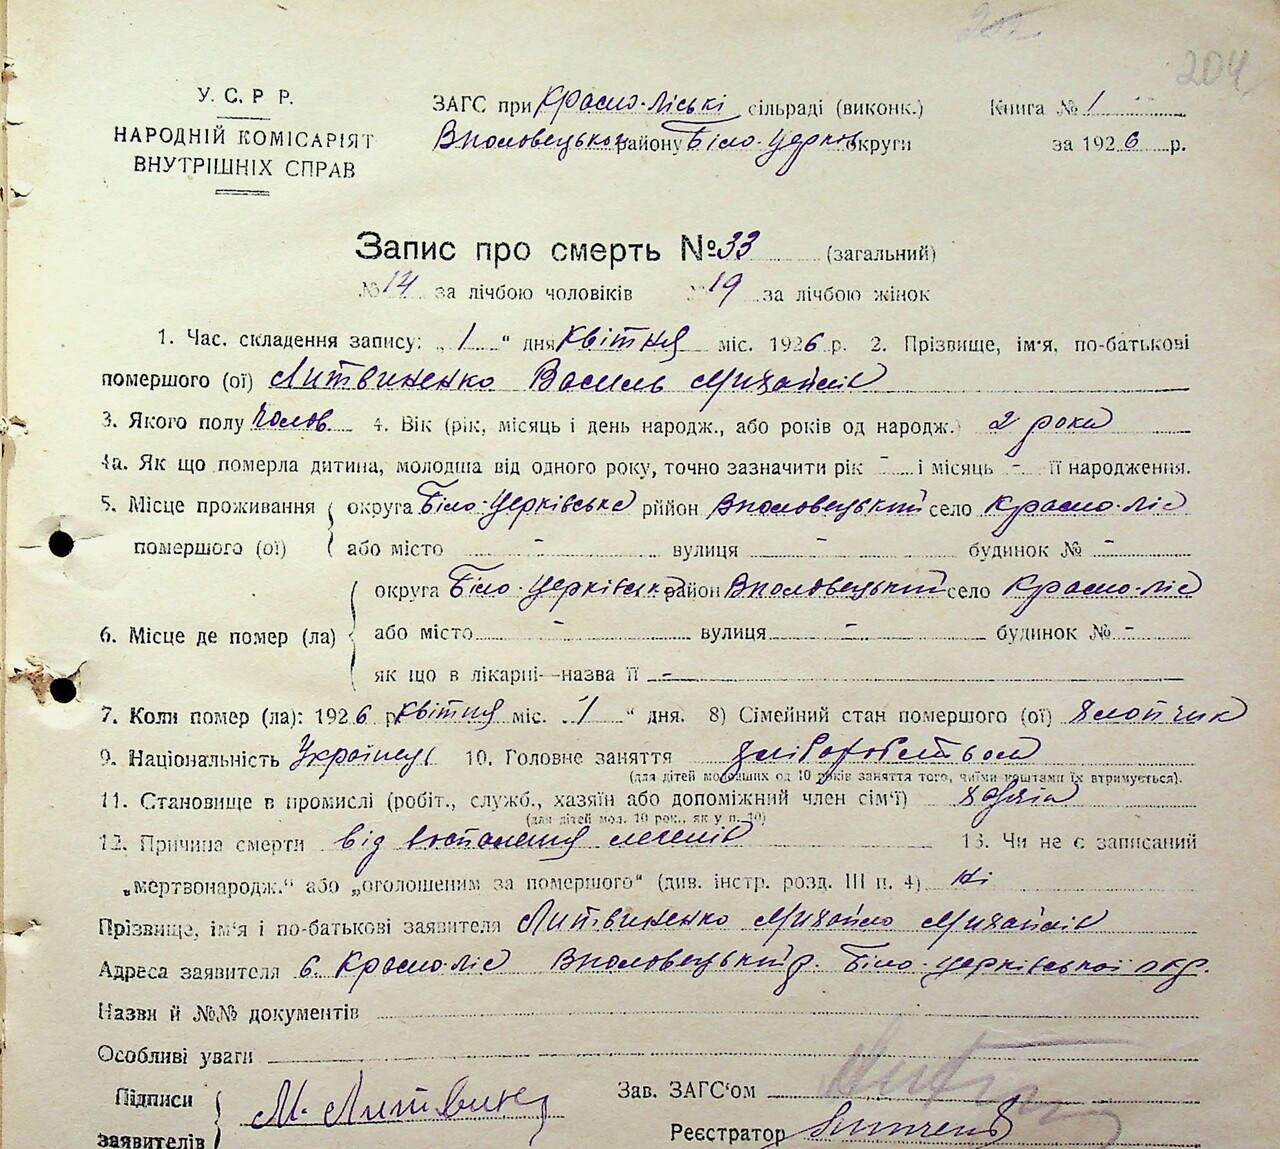 204
У. С. Р Р.
НАРОДНІЙ КОМІСАРІЯТ
ВНУТРІШНІХ СПРАВ
ЗАГС при Красно-ліські сільраді (виконк.) Книга № 1
району Біло-Церків округи за 1926 р.
Запис про смерть № 33 (загальний)
№ 14 за лічбою чоловіків № 19 за лічбою жінок
1. Час. складення запису: „1“ дня квітня міс. 1926 р. 2. Прізвище, ім'я, по-батькові
помершого (ої) Литвиненко Василь Михайлів
3. Якого полу чолов. 4. Вік (рік, місяць і день народж., або років од народж.) 2 роки
4а. Як що померла дитина, молодша від одного року, точно зазначити рік - і місяць - її народження.
5. Місце проживання помершого (ої) округа Біло-Церківське рййон село Красно-ліс
або місто - вулиця - будинок № -
6. Місце де помер (ла) округа Біло-Церківськ район село Красно-ліс
або місто - вулиця - будинок № -
як що в лікарні—назва її -
7. Коли помер (ла): 1926 р квітня міс. „1“ дня. 8) Сімейний стан помершого (ої) хлопчик
9. Національність Українець 10. Головне заняття хліборобством
(для дітей молодших од 10 років заняття того, чиїми коштами їх втримується).
11. Становище в промислі (робіт., служб., хазяїн або допоміжний член сім'ї) хазяїн
(для дітей мол. 10 рок., як у п. 10)
12. Причина смерти від воспаления легенів 13. Чи не є записаний
„мертвонародж.“ або „оголошеним за помершого“ (див. інстр. розд. III п. 4) ні
Прізвище, ім'я і по-батькові заявителя Литвиненко Михайло Михайлів
Адреса заявителя с. Красно-ліс р. Біло-Церківської окр.
Назви й №№ документів
Особливі уваги
Підписи заявителів М. Литвин
Зав. ЗАГС'ом
Реєстратор